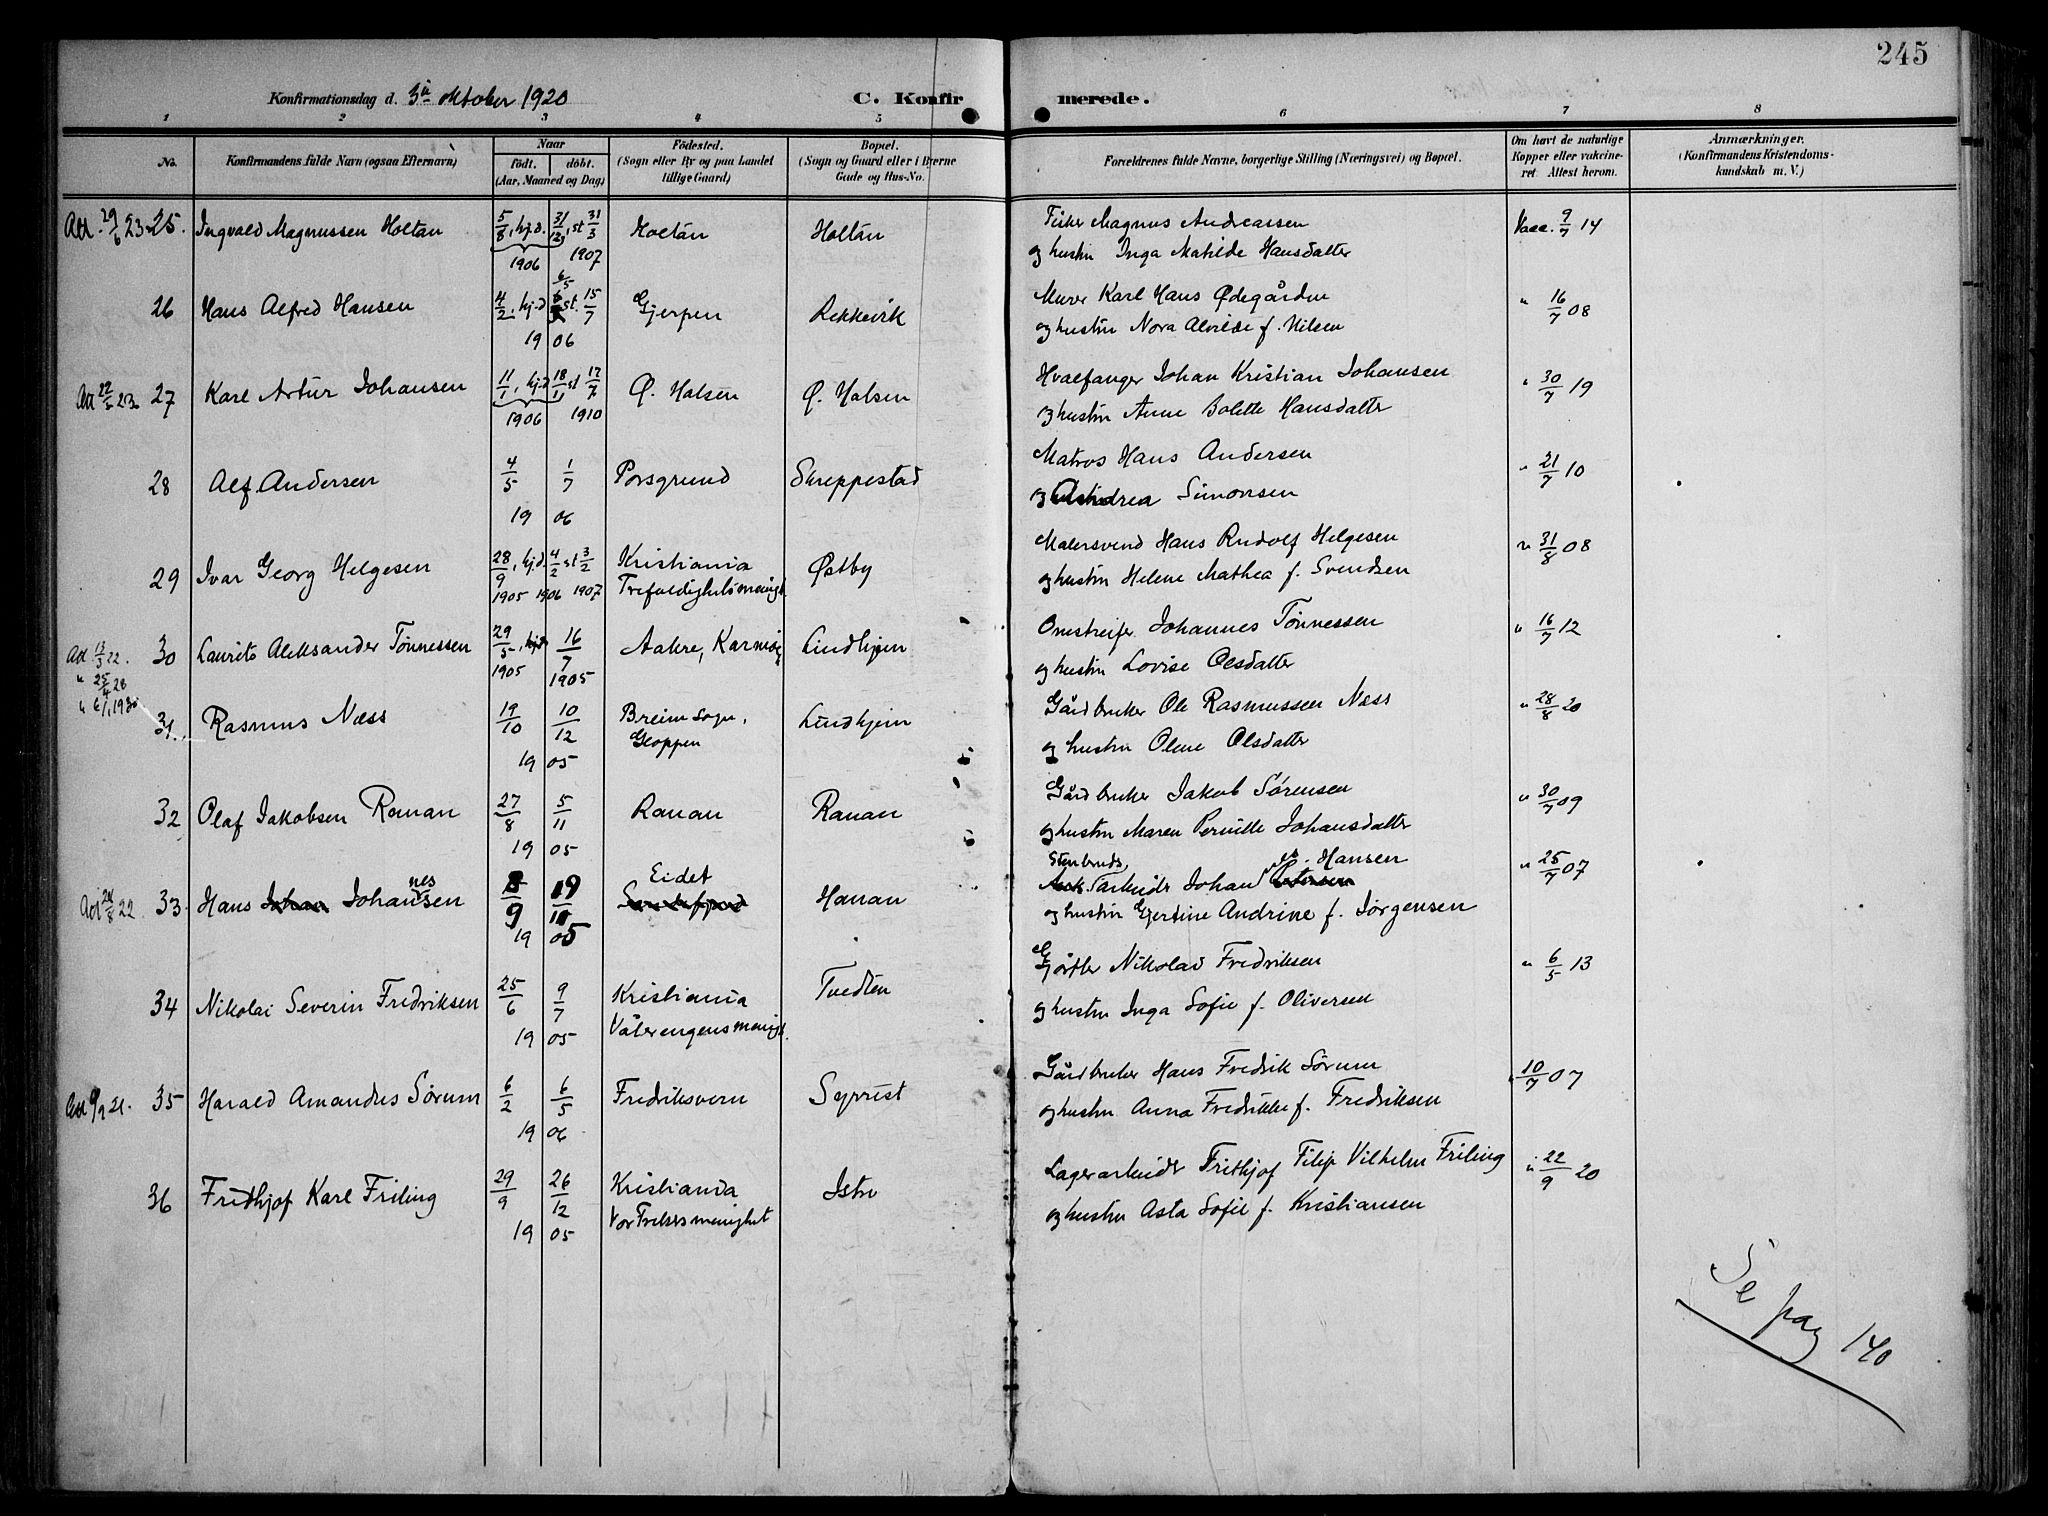 245
Konfirmationsdag d. 3die oktober 1920 C. Konfirmerede.
1 2 3 4 5 6 7 8
No. Konfirmandens fulde Navn (ogsaa Efternavn) Naar født. døbt. (Aar, Maaned og Dag) Fødested. (Sogn eller By og paa Landet tillige Gaard) Bopæl. (Sogn og Gaard eller i Byerne Gade og Hus-No. Forældrenes fulde Navne, borgerlige Stilling (Næringsvei) og Bopæl. Om havt de naturlige Kopper eller vakcineret. Attest herom. Anmærkninger. (Konfirmandens Kristendomskundskab m. V.)
Att. 29/6 23 25. Ingvald Magnussen Holtan 5/8, hj.d. 31/12, st 31/3 Holtan Holtan Fisker Magnus Andreassen Vacc. 9/7 14
1906 1907 og hustru Inga Matilde Hansdatter
6/5
26 Hans Alfred Hansen 4/2, hj.d. st. 15/7 Gjerpen Rekkevik Murer Karl Hans Ødegården " 16/7 08
19 06 og hustru Nora Alvilde f. Nilsen
Att 22/5 23 27 Karl Artur Johansen 11/1, hj.d 18/11 st 17/7 Ø. Halsen Ø. Halsen Hvalfanger Johan Kristian Johansen " 30/7 19
1906 1910 og hustru Anne Bolette Hansdatter
28 Alf Andersen 4/5 1/7 Porsgrund Skreppestad Matros Hans Andersen " 21/7 10
19 06 og Andrea Simonsen
29 Ivar Georg Helgesen 28/9, hj.d. 4/2 st 3/2 Kristiania Østby Malersvend Hans Rudolf Helgesen " 31/8 08
1905 1906 1907 Trefoldighetsmenigt og hustru Helene Mathea f. Svendsen
Att 13/3 22. 30 Laurits Aleksander Tønnessen 29/5, hj.d 16/7 Aakre, Karmøy Lindhjem Omstreifer Johannes Tønnessen " 16/7 12
" 25/4 28 1905 1905 og hustru Lovise Olsdatter
" 6/1 1930
31. Rasmus Næss 19/10 10/12 Breim sogn, Gloppen Lindhjem Gårdbruker Ole Rasmussen Næss " 28/8 20
19 05 og hustru Oline Olsdatter
32 Olaf Jakobsen Roman 27/8 5/11 Ranan Ranan Gårdbruker Jakob Sørensen " 30/7 09
19 05 og hustru Maren Pernille Johansdatter
Att 24/8 22 33. Hans Johan Johannessen 8/9 19/11 Eidet Sandefjord Hanan Stenbruds arbeider Johannes Hansen " 25/7 07
19 05 og hustru Gjertine Andrine f. Jørgensen
34 Nikolai Severin Fredriksen 25/6 9/7 Kristiania Tvedten Gjørtler Nikolai Fredriksen " 6/5 13
19 05 Vålerengens menigt. og hustru Inga Sofie f. Oliversen
Att 9/9 21. 35 Harald Amandus Sørum 6/2 6/5 Fredriksvern Syrrist Gårdbruker Hans Fredrik Sørum " 10/7 07
19 06 og hustru Anna Fredrikke f. Fredriksen
36 Fridthjof Karl Friling 29/9 26/12 Kristiania Istre Lagerarbeider Frithjof Filip Vilhelm Friling " 22/9 20
19 05 Vor Frelsers menighet og hustru Asta Sofie f. Kristiansen
Se pag 140